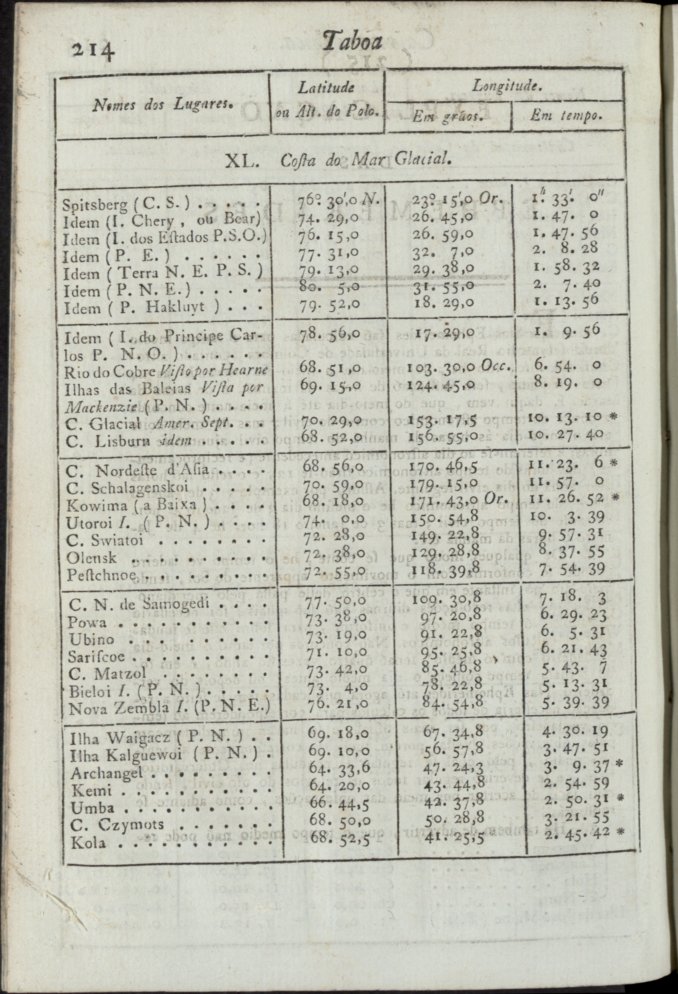 214 Taboa
Nomes dos Lugares. Latitude ou Alt. do Polo. Longitude.
Em gráos. Em tempo.
XL. Costa do Mar Glacial.
Spitsberg (C. S.) . . . . . 76º 30',0 N. 23º 15',0 Or. 1h 33' 0"
Idem (I. Chery, ou Bear) 74. 29,0 26. 45,0 1. 47. 0
Idem (I. dos Estados P.S.O.) 76. 15,0 26. 59,0 1. 47. 56
Idem (P. E.) . . . . . . 77. 31,0 32. 7,0 2. 8. 28
Idem (Terra N. E. P. S.) 79. 13,0 29. 38,0 1. 58. 32
Idem (P. N. E.) . . . . . 80. 5,0 31. 55,0 2. 7. 40
Idem (P. Hakluyt) . . . 79. 52,0 18. 29,0 1. 13. 56
Idem (I. do Principe Car-
los P. N. O.) . . . . . . 78. 56,0 17. 29,0 1. 9. 56
Rio do Cobre Visto por Hearne 68. 51,0 103. 30,0 Occ. 6. 54. 0
Ilhas das Baleias Vista por
Mackenzie (P. N.) . . . . 69. 15,0 124. 45,0 8. 19. 0
C. Glacial Amer. Sept. . . 70. 29,0 153. 17,5 10. 13. 10 *
C. Lisburn idem . . . . . 68. 52,0 156. 55,0 10. 27. 40
C. Nordeste d'Asia . . . . 68. 56,0 170. 46,5 11. 23. 6 *
C. Schalagenskoi . . . . . 70. 59,0 179. 15,0 11. 57. 0
Kowima (a Baixa) . . . . 68. 18,0 171. 43,0 Or. 11. 26. 52 *
Utoroi I. (P. N.) . . . . 74. 0,0 150. 54,8 10. 3. 39
C. Swiatoi . . . . . . . 72. 28,0 149. 22,8 9. 57. 31
Olensk . . . . . . . . . 72. 38,0 129. 28,8 8. 37. 55
Pestchnoe, . . . . . . . . 72. 55,0 118. 39,8 7. 54. 39
C. N. de Samogedi . . . . 77. 50,0 109. 30,8 7. 18. 3
Powa . . . . . . . . . . 73. 38,0 97. 20,8 6. 29. 23
Ubino . . . . . . . . . 73. 19,0 91. 22,8 6. 5. 31
Sariscoe . . . . . . . . . 71. 10,0 95. 25,8 6. 21. 43
C. Matzol . . . . . . . . 73. 42,0 85. 46,8 5. 43. 7
Bieloi I. (P. N.) . . . . . 73. 4,0 78. 22,8 5. 13. 31
Nova Zembla I. (P. N. E.) 76. 21,0 84. 54,8 5. 39. 39
Ilha Waigacz (P. N.) . . 69. 18,0 67. 34,8 4. 30. 19
Ilha Kalguewoi (P. N.) . 69. 10,0 56. 57,8 3. 47. 51
Archangel . . . . . . . . 64. 33,6 47. 24,3 3. 9. 37 *
Kemi . . . . . . . . . . 64. 20,0 43. 44,8 2. 54. 59
Umba . . . . . . . . . . 66. 44,5 42. 37,8 2. 50. 31 *
C. Czymots . . . . . . . 68. 50,0 50. 28,8 3. 21. 55
Kola . . . . . . . . . . 68. 52,5 41. 25,5 2. 45. 42 *